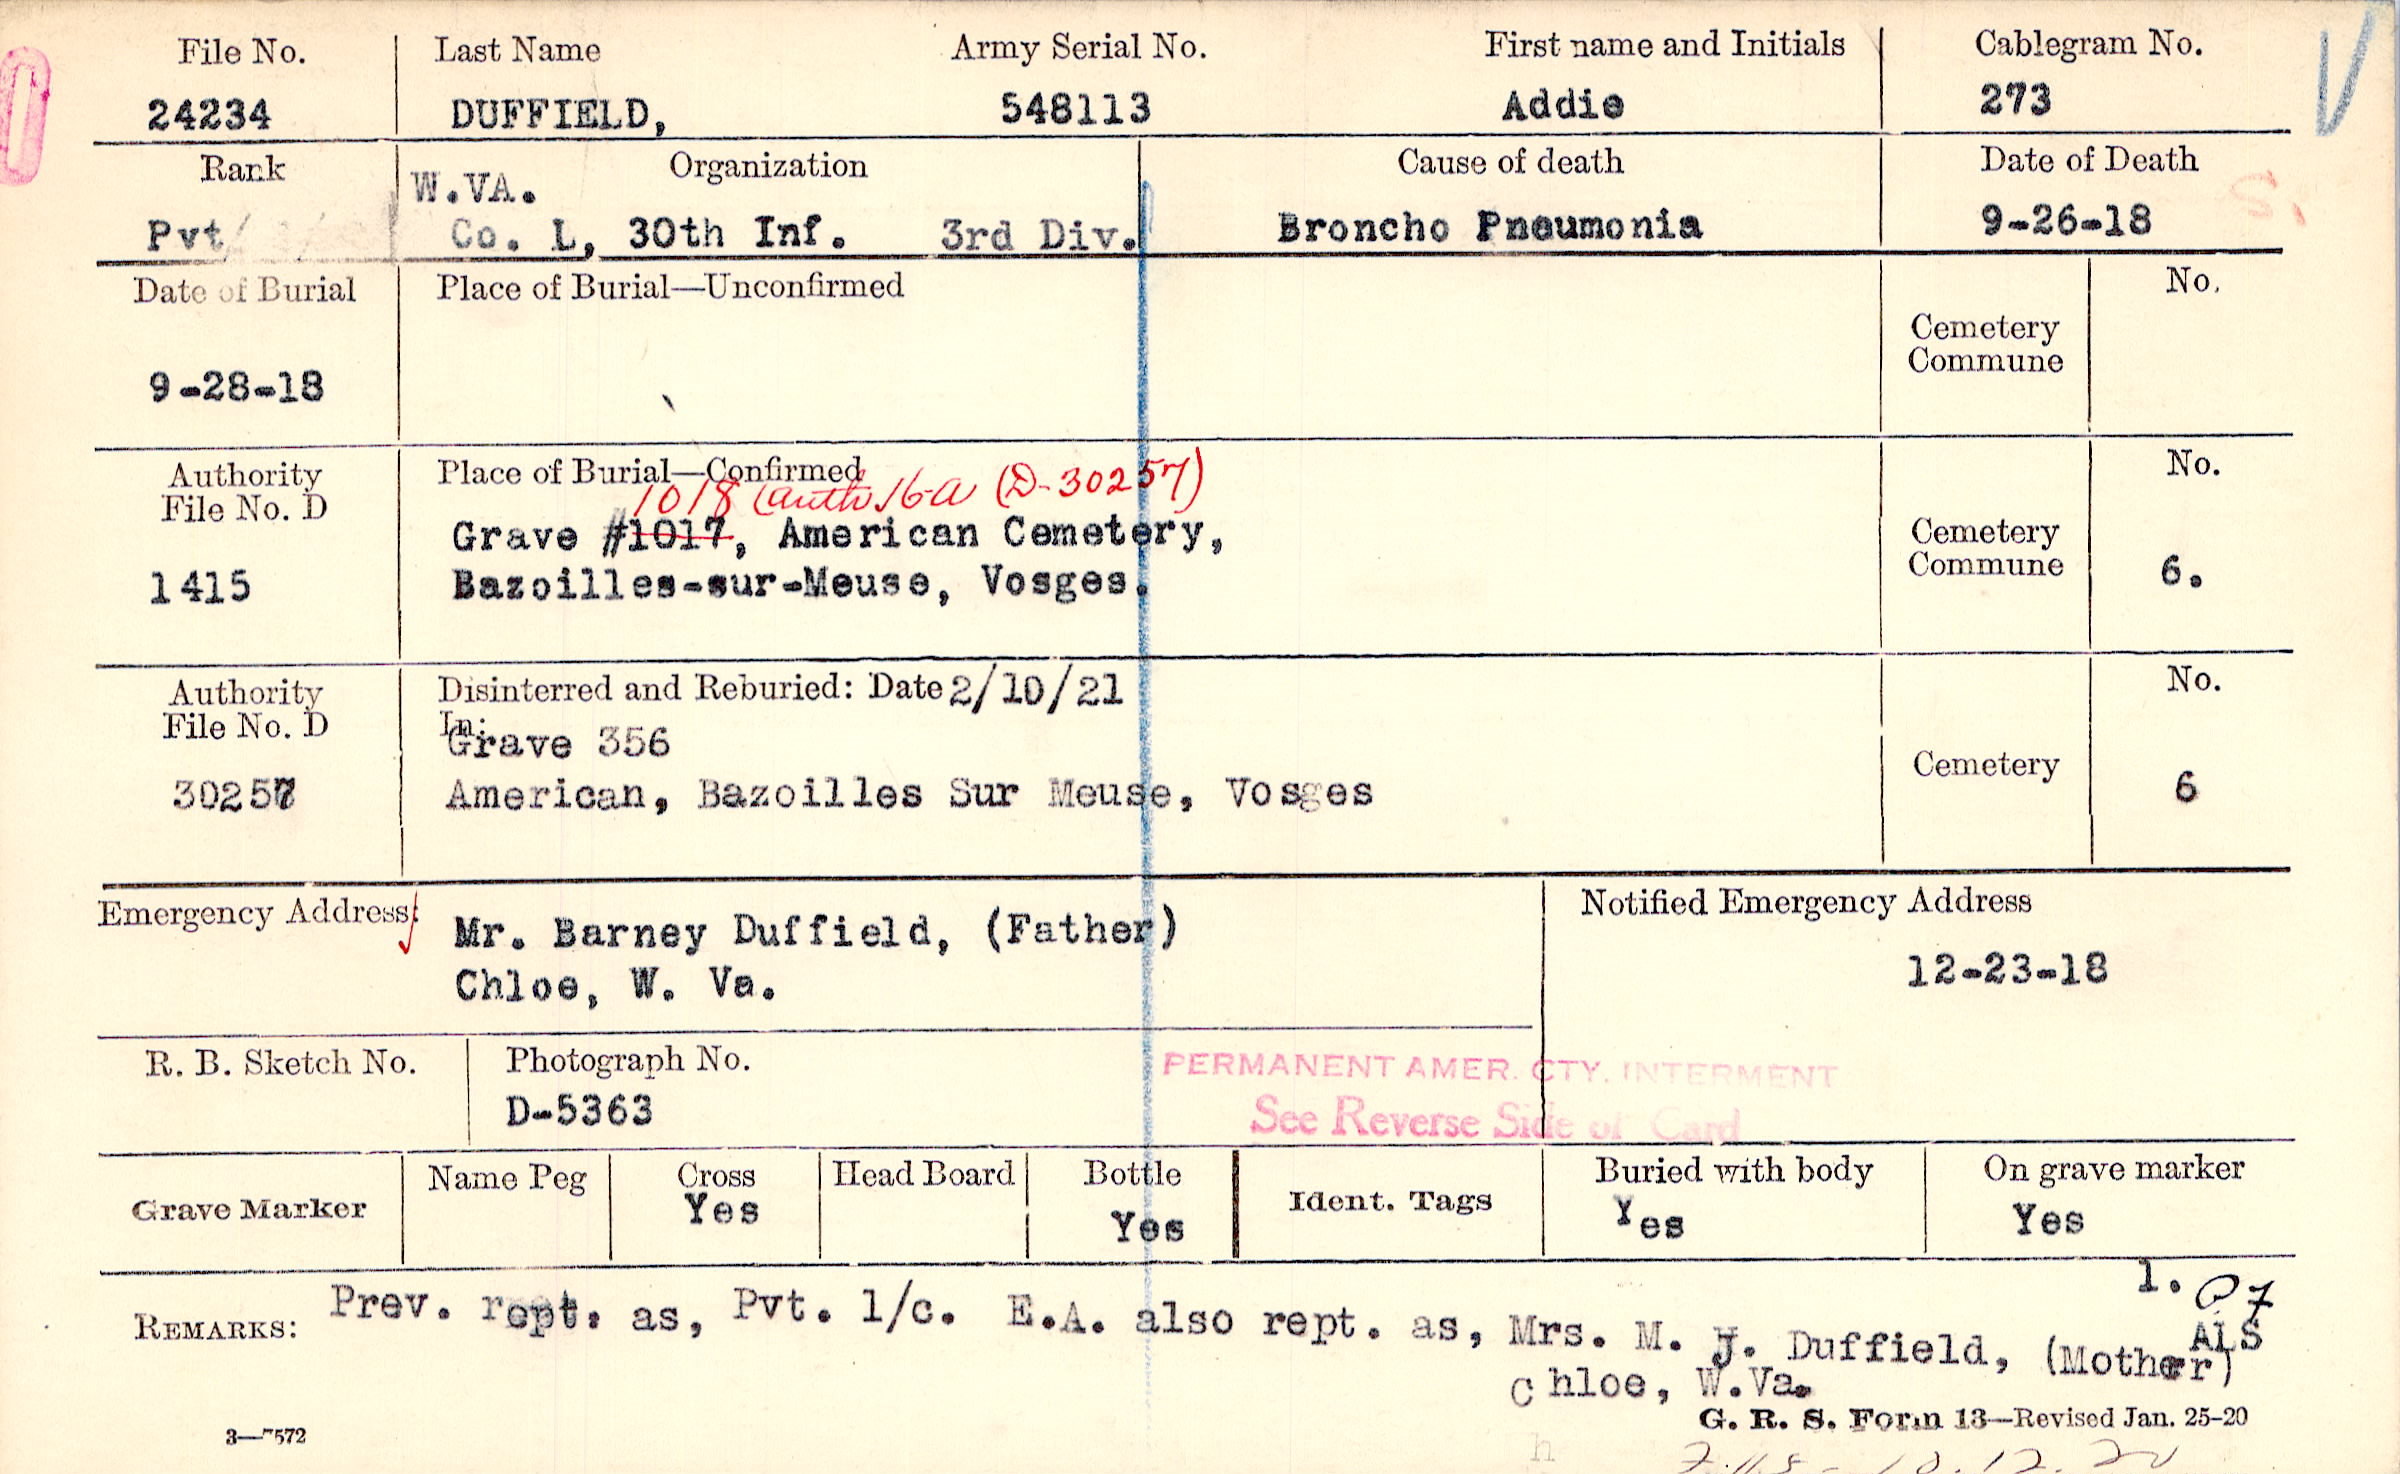 File No. Last Name Army Serial No. First name and Initials Cablegram No.
24234 DUFFIELD, 548113 Addie 273
Rank Organization Cause of death Date of Death
W.VA.
Pvt Co. L, 30th Inf. 3rd Div. Broncho Pneumonia 9-26-18
S.
Date of Burial Place of Burial—Unconfirmed No.
Cemetery
Commune
9-28-18
Authority Place of Burial—Confirmed No.
File No. D 1018 (auth 16-a (D-30257)
Grave #1017, American Cemetery, Cemetery
Commune
1415 Bazoilles-sur-Meuse, Vosges. 6.
Authority Disinterred and Reburied: Date 2/10/21 No.
File No. D In:
Grave 356 Cemetery
30257 American, Bazoilles Sur Meuse, Vosges 6
Emergency Address: Mr. Barney Duffield, (Father) Notified Emergency Address
Chloe, W. Va. 12-23-18
R. B. Sketch No. Photograph No. PERMANENT AMER. CTY. INTERMENT
D-5363 See Reverse Side of Card
Grave Marker Name Peg Cross Head Board Bottle Ident. Tags Buried with body On grave marker
Yes Yes Yes Yes
1.
REMARKS: Prev. rept. as, Pvt. 1/c. E.A. also rept. as, Mrs. M. J. Duffield, (Mother)
ALS
Chloe, W.Va.
G. R. S. Form 13—Revised Jan. 25-20
3—7572